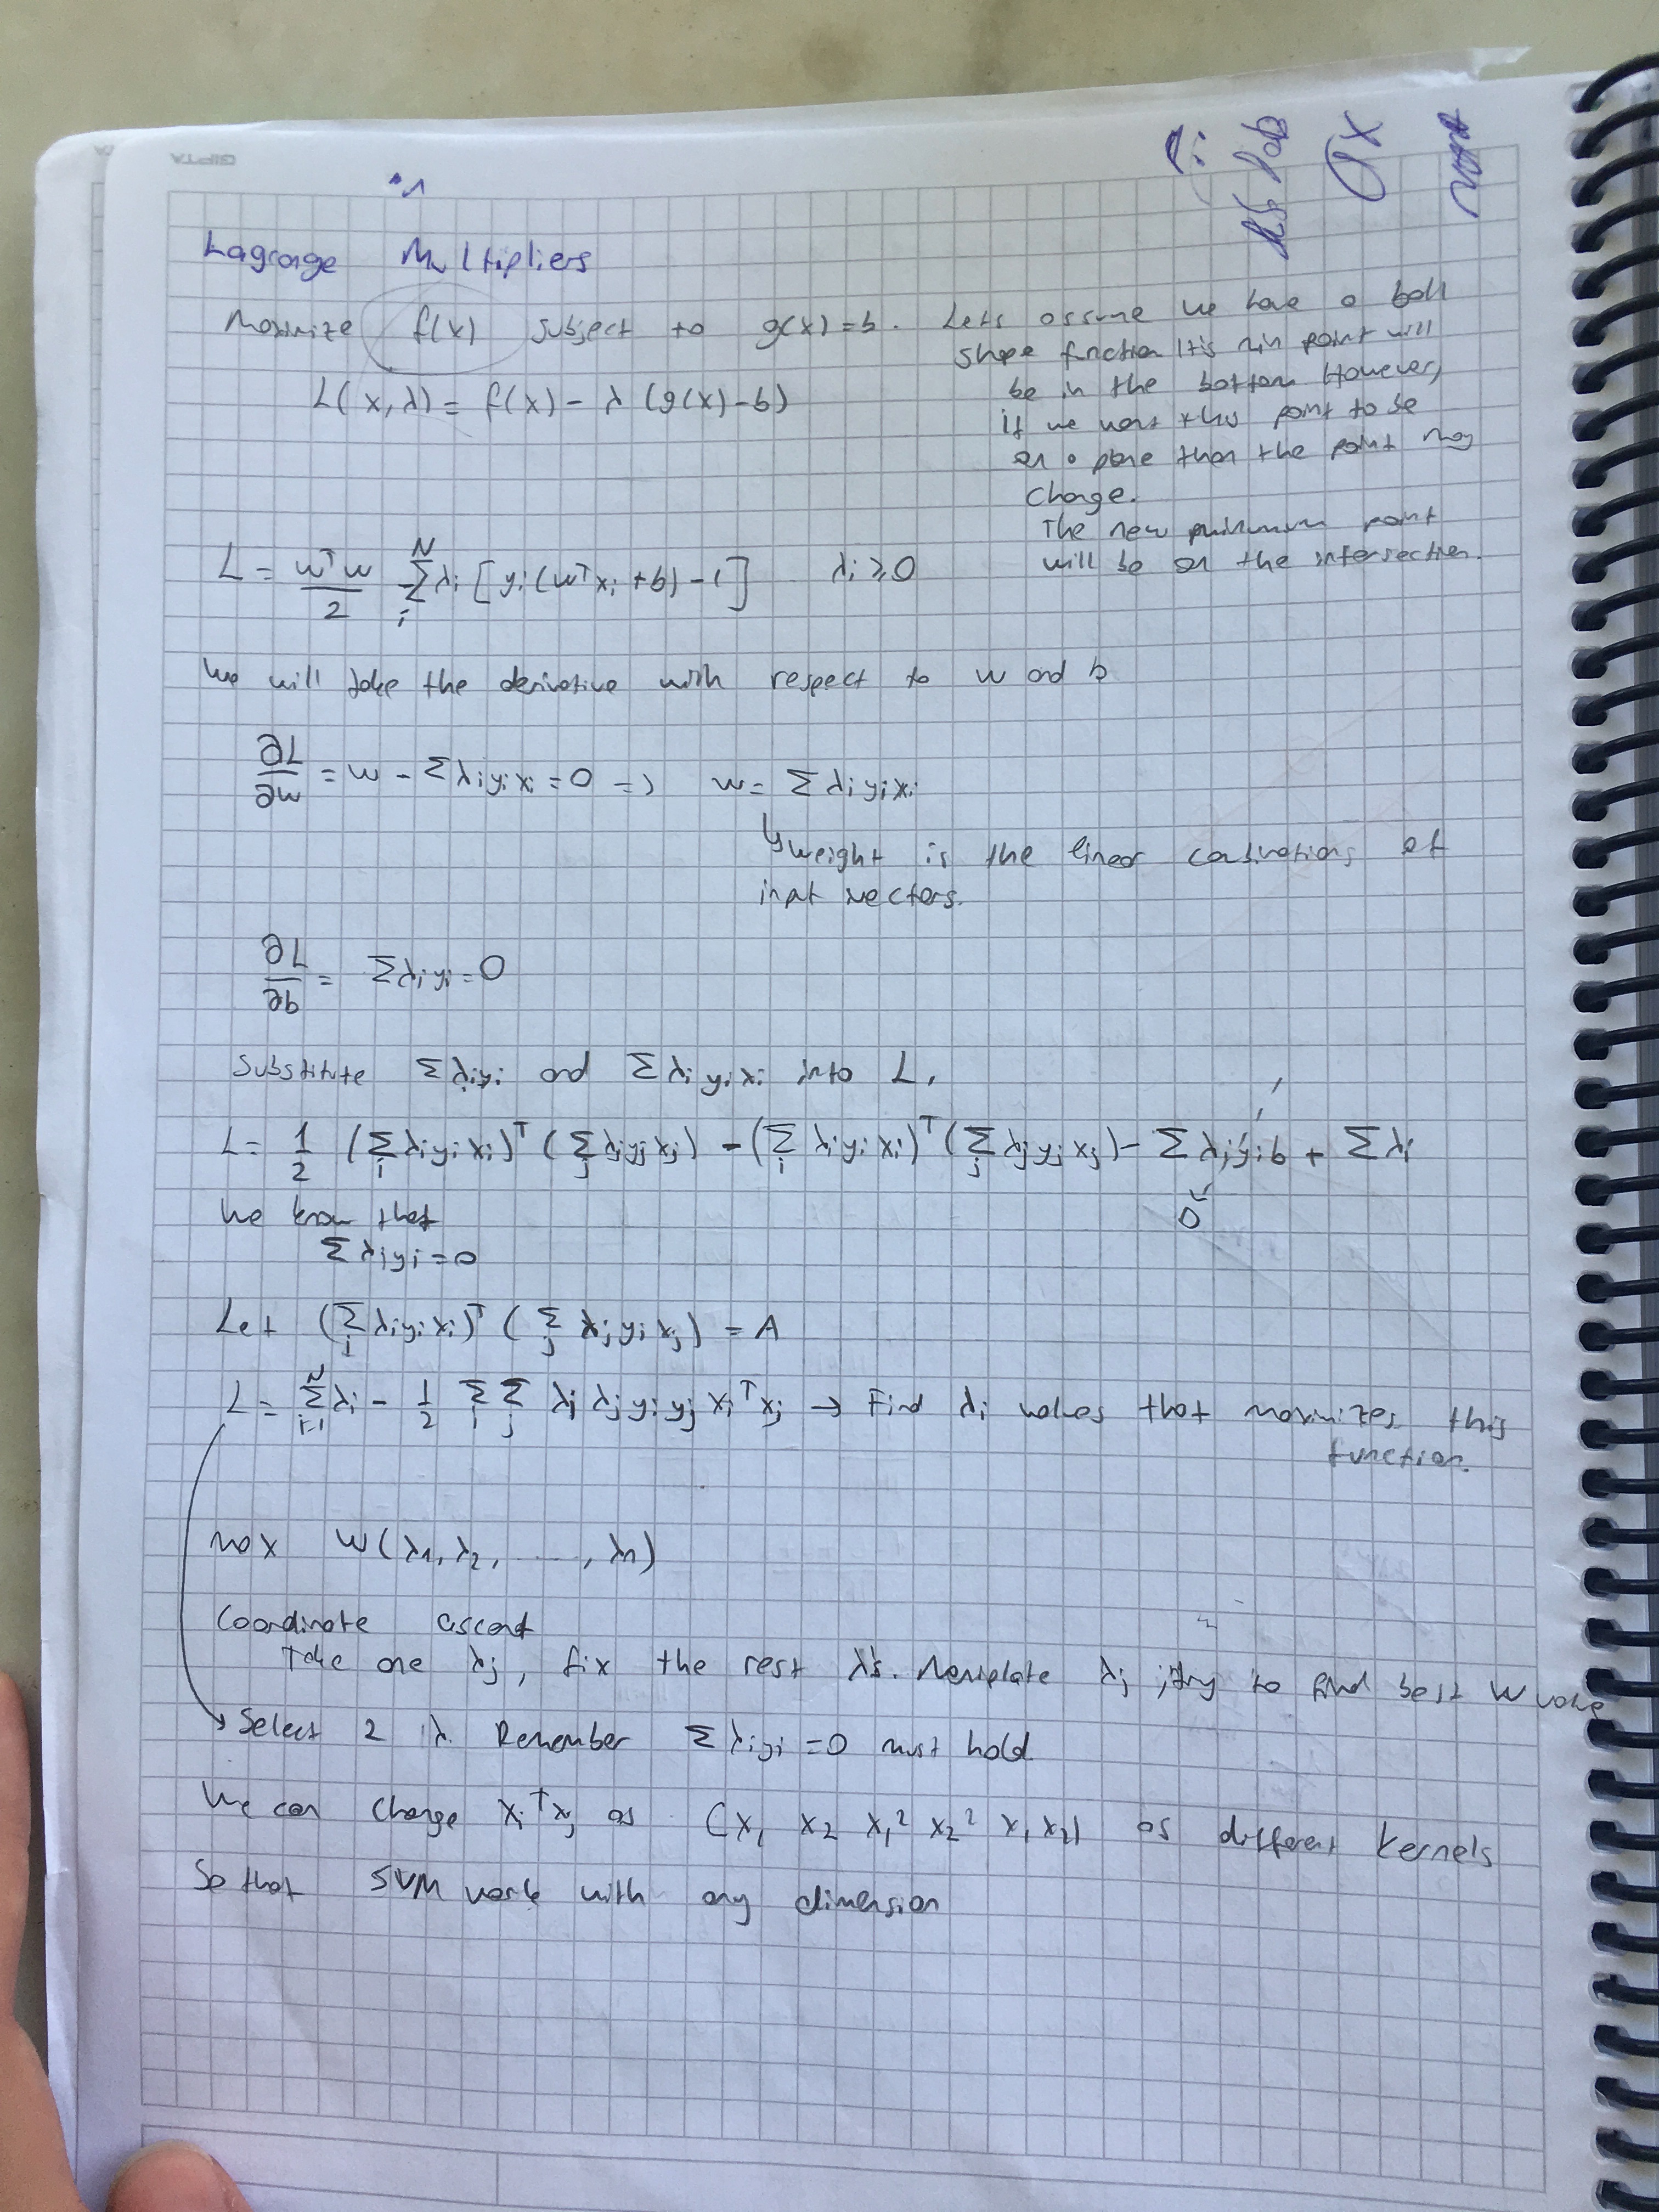 GIPTA
Lagrange Multipliers
Maximize f(x) subject to g(x)=b.
L(x,λ) = f(x) - λ (g(x)-b)
Lets assume we have a ball
shape function It's min point will
be in the bottom However,
if we want this point to be
on a plane than the point may
change.
The new minimum point
will be on the intersection.
L = wᵀw/2 - Σᵢᴺ λi [yi(wᵀxi + b) - 1] λi ≥ 0
We will take the derivative with respect to w and b
∂L/∂w = w - Σ λi yi xi = 0 => w = Σ λi yi xi
↳ weight is the linear combinations of
input vectors.
∂L/∂b = Σ λi yi = 0
Substitute Σ λi yi and Σ λi yi xi into L,
L = 1/2 (Σᵢ λi yi xi)ᵀ (Σⱼ λj yj xj) - (Σᵢ λi yi xi)ᵀ (Σⱼ λj yj xj) - Σ λi yi b + Σ λi
0
We know that
Σ λi yi = 0
Let (Σᵢ λi yi xi)ᵀ (Σⱼ λj yj xj) = A
L = Σᵢ₌₁ᴺ λi - 1/2 Σᵢ Σⱼ λi λj yi yj xiᵀ xj → Find λi values that maximizes this
function.
max W(λ1, λ2, ..., λn)
Coordinate ascent
Take one λj, fix the rest λ's. Maniplate λj ; try to find best W value
Select 2 λ. Remember Σ λi yi = 0 must hold
We can change xiᵀxj as (x1 x2 x1² x2² x1 x2) as different kernels
So that SVM work with any dimension